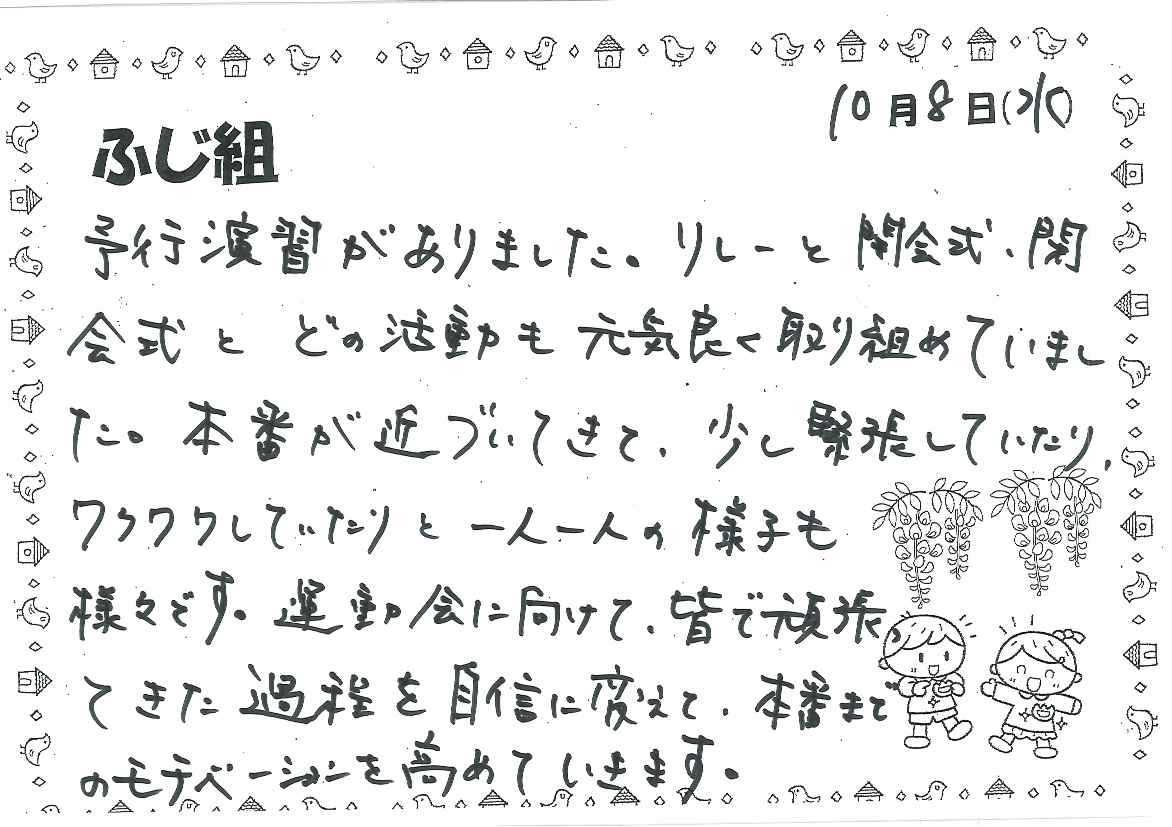 10月8日(水)
ふじ組
予行演習がありました。リレーと開会式、閉
会式と どの活動も元気良く取り組めていまし
た。本番が近づいてきて、少し緊張していたり、
ワクワクしていたりと一人一人の様子も
様々です。運動会に向けて、皆で頑張っ
てきた過程を自信に変えて、本番まで
のモチベーションを高めていきます。